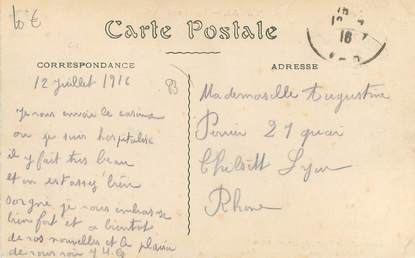 10 €
Carte Postale
CORRESPONDANCE
ADRESSE
16
12 Juillet 1916
Je vous envoie le casino
ou je suis hospitalisé
il y fait tres beau
et on est assez bien
soigné je vous embrasse
bien fort et a bientot
de vos nouvelles et le plaisir
de vous voir
Mademoiselle Augustine
Perrier 27 quai
Lyon
Rhone